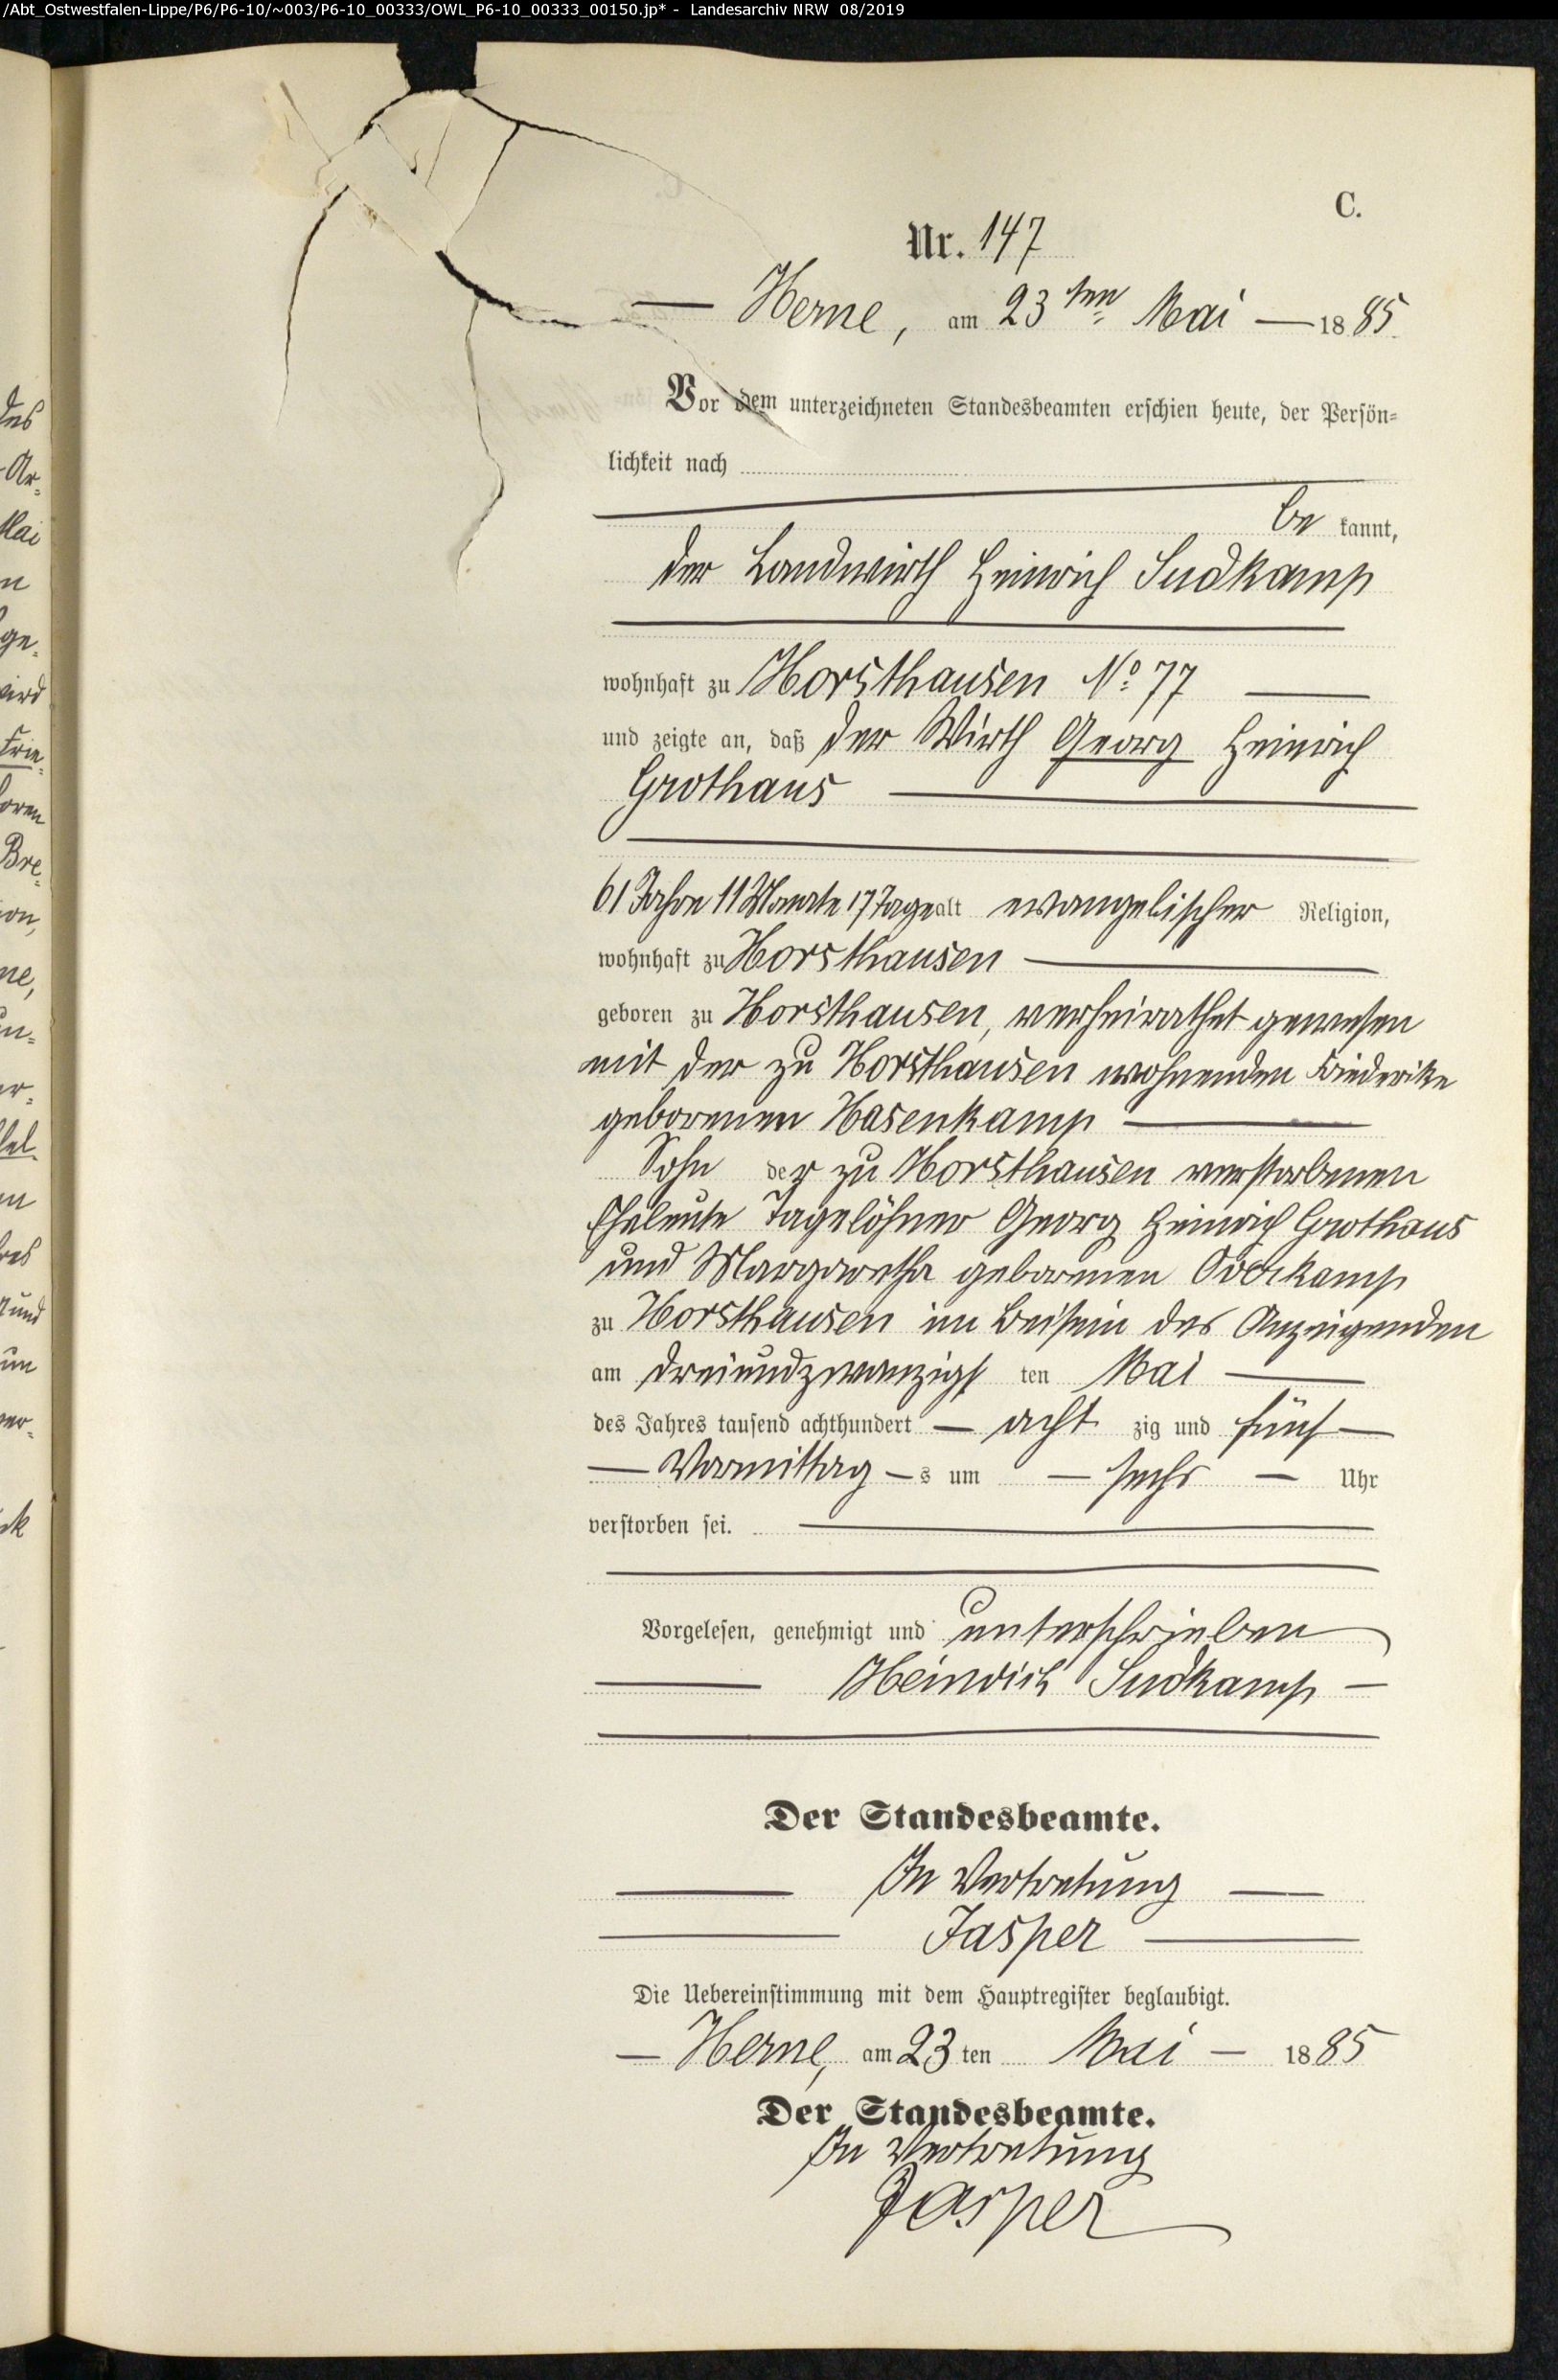 /Abt_Ostwestfalen-Lippe/P6/P6-10/~003/P6-10_00333/OWL_P6-10_00333_00150.jp* - Landesarchiv NRW 08/2019
C.
Nr. 147
Herne, am 23ten Mai 1885
Vor dem unterzeichneten Standesbeamten erschien heute, der Persön-
lichkeit nach
be kannt,
der Landwirth Heinrich Sudkamp
wohnhaft zu Horsthausen No 77
und zeigte an, daß der Wirth Georg Heinrich
Grothaus
61 Jahre 11 Monate 17 Tage alt evangelischer Religion,
wohnhaft zu Horsthausen
geboren zu Horsthausen, verheirathet gewesen
mit der zu Horsthausen wohnenden Friederike
geborenen Hasenkamp
Sohn der zu Horsthausen verstorbenen
Eheleute Tagelöhner Georg Heinrich Grothaus
und Margaretha geborenen
zu Horsthausen im Beisein des Anzeigenden
am dreiundzwanzigsten Mai
des Jahres tausend achthundert acht zig und fünf
Vormittag s um sechs Uhr
verstorben sei.
Vorgelesen, genehmigt und unterschrieben
Heinrich Sudkamp
Der Standesbeamte.
In Vertretung
Jasper
Die Uebereinstimmung mit dem Hauptregister beglaubigt.
Herne, am 23 ten Mai 1885
Der Standesbeamte.
In Vertretung
Jasper
des
Ar-
Mai
n
ge-
wird
Frie-
boren
Bre-
ion,
ne,
er-
sel
und
ver-